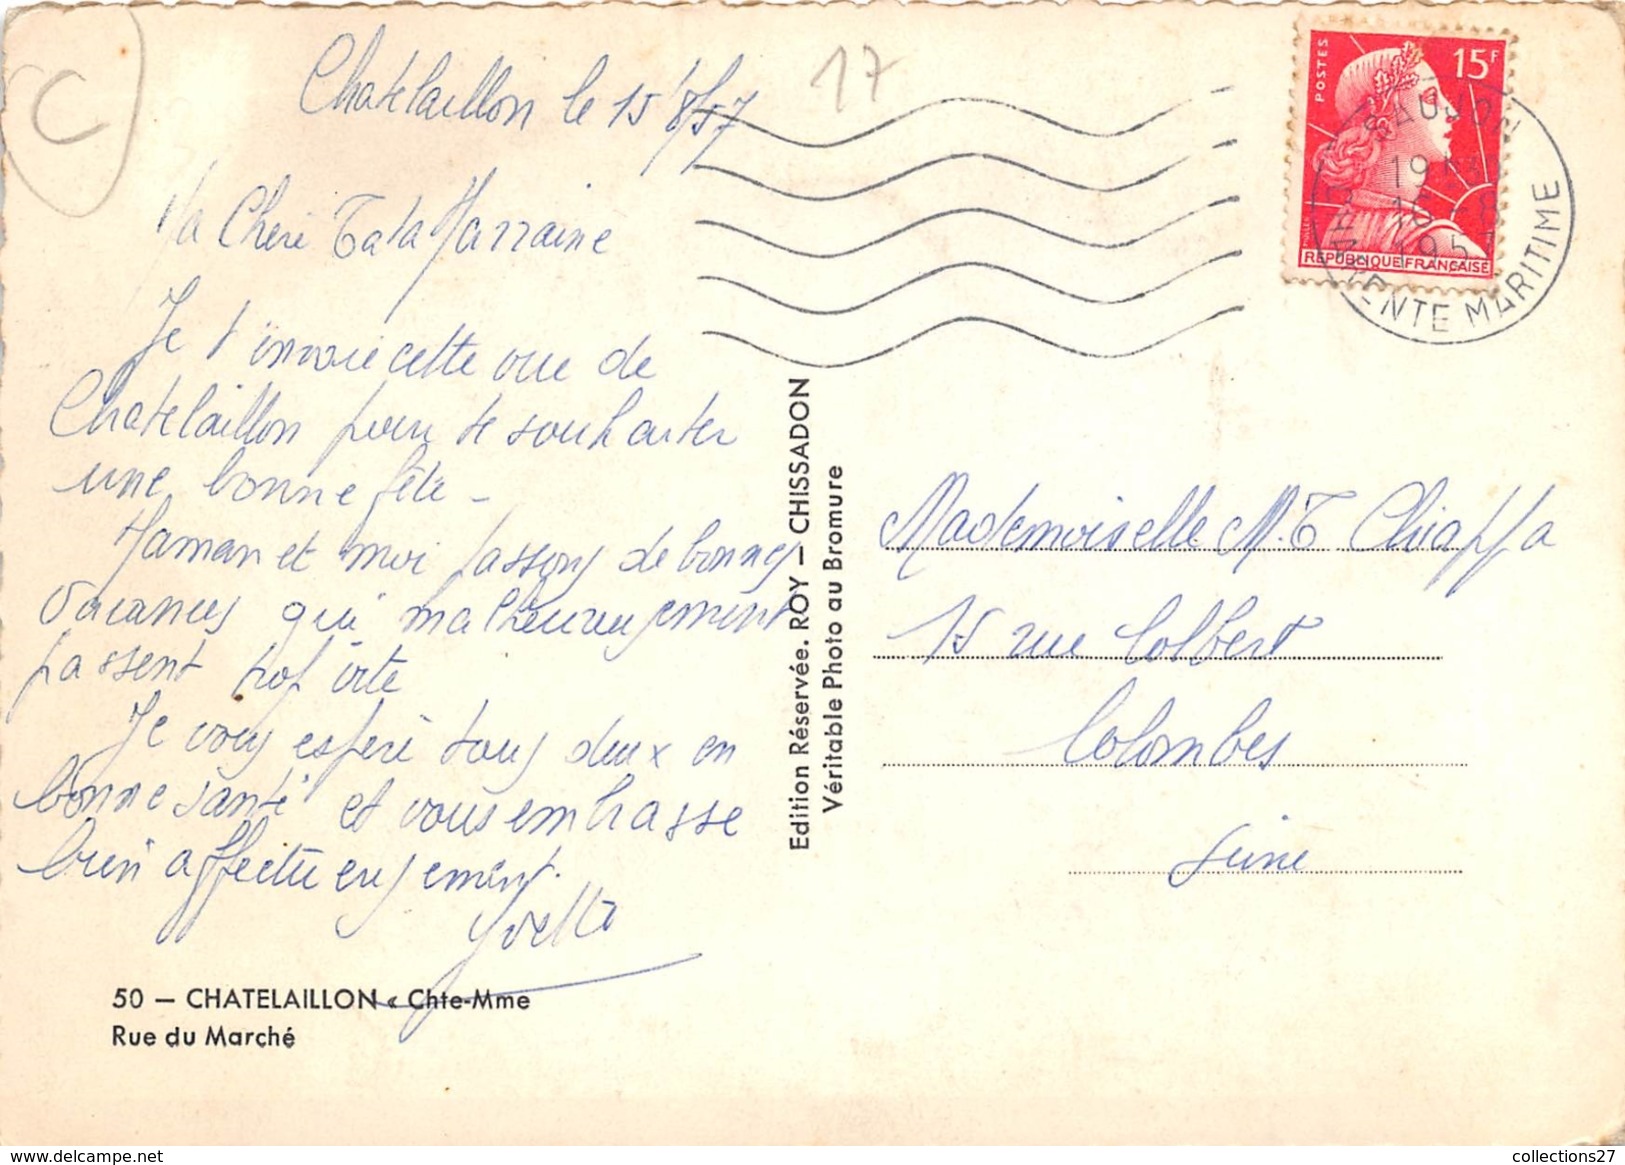 C
17
Chatelaillon le 15/8/57
Ma Cheri Tata Marraine
Je t'envoie cette vue de
Chatelaillon pour te souhaiter
une bonne fête -
Maman et moi passons de bonnes
vacances qui malheureusement
passent trop vite
Je vous espère tous deux en
bonne santé et vous embrasse
bien affectueusement.
Yvette
50 — CHATELAILLON « Chte-Mme
Rue du Marché
Edition Réservée. ROY — CHISSADON
Véritable Photo au Bromure
POSTES
15F
REPUBLIQUE FRANÇAISE
SAUJON
19
16 - 8
1957
CHARENTE MARITIME
Mademoiselle M.T Chiappa
15 rue Colbert
Colombes
Seine
collections27